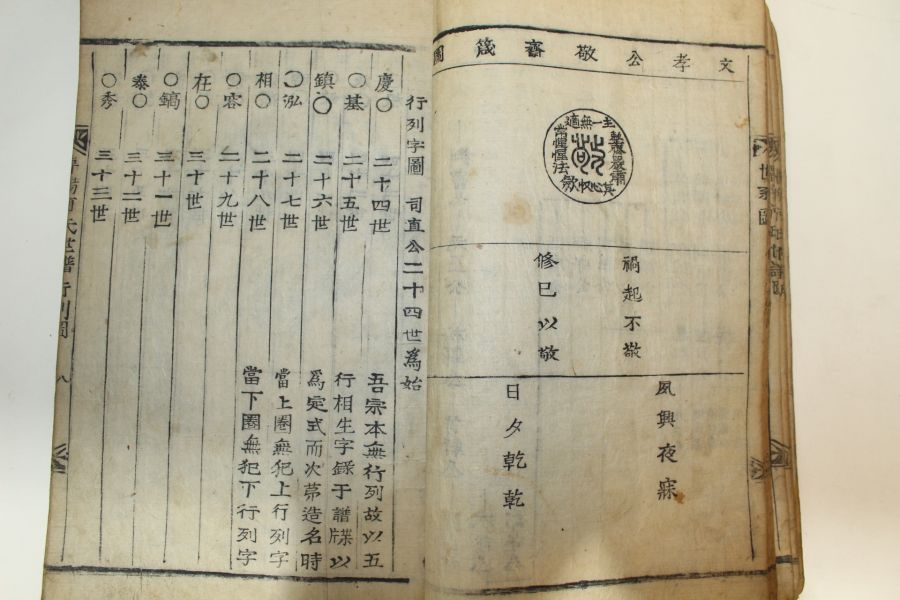 文孝公敬齋箴圖
主一無適
整齊嚴肅
其心收斂
常惺惺法
敬
禍起不敬
修已以敬
夙興夜寐
日夕乾乾
行列字圖 司直公二十四世爲始
慶〇 二十四世
〇基 二十五世
鎮〇 二十六世
〇泓 二十七世
相〇 二十八世
〇容 二十九世
在〇 三十世
〇鎬 三十一世
泰〇 三十二世
〇秀 三十三世
吾宗本無行列故以五
行相生字錄于譜牒以
爲定式而次第造名時
當上圈無犯上行列字
當下圈無犯下行列字
氏世譜 行列圖 八